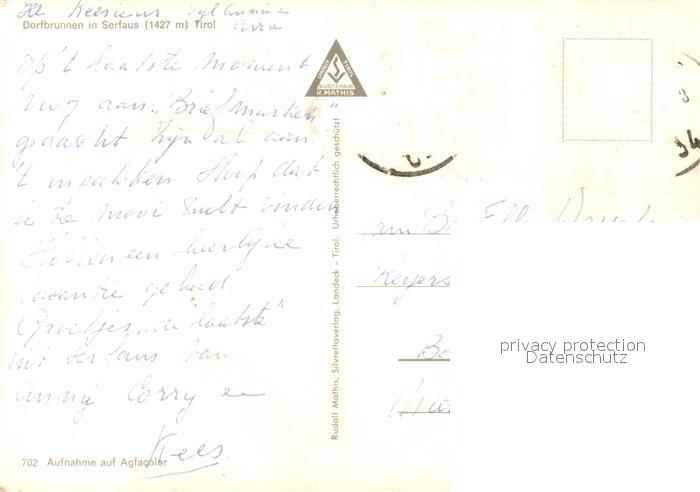 Dorfbrunnen in Serfaus (1427 m) Tirol
Op't laatste moment
nog aan "Briefmarken"
gedacht zijn al aan
't inpakken Hoop dat
je ze mooi zult vinden
Hebben een heerlijke
vacantie gehad.
Groetjes "de laatste"
uit Serfaus van
Anny Corry en
Kees
702 Aufnahme auf Agfacolor
LANDECK TIROL
SILVRETTA-VERLAG
R. MATHIS
Rudolf Mathis, Silvrettaverlag, Landeck - Tirol. Urheberrechtlich geschützt
privacy protection
Datenschutz